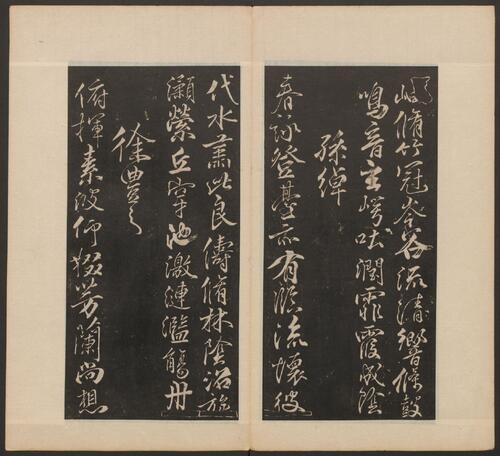 翳岫脩竹冠岑谷流清響條鼓
鳴音玄崿吐潤霏霞成陰
孫綽
春詠登臺亦有臨流懷彼
伐木肅此良儔脩林陰沼旋
瀨縈丘穿池激連濫觴舟
徐豐之
俯揮素波仰掇芳蘭尚想